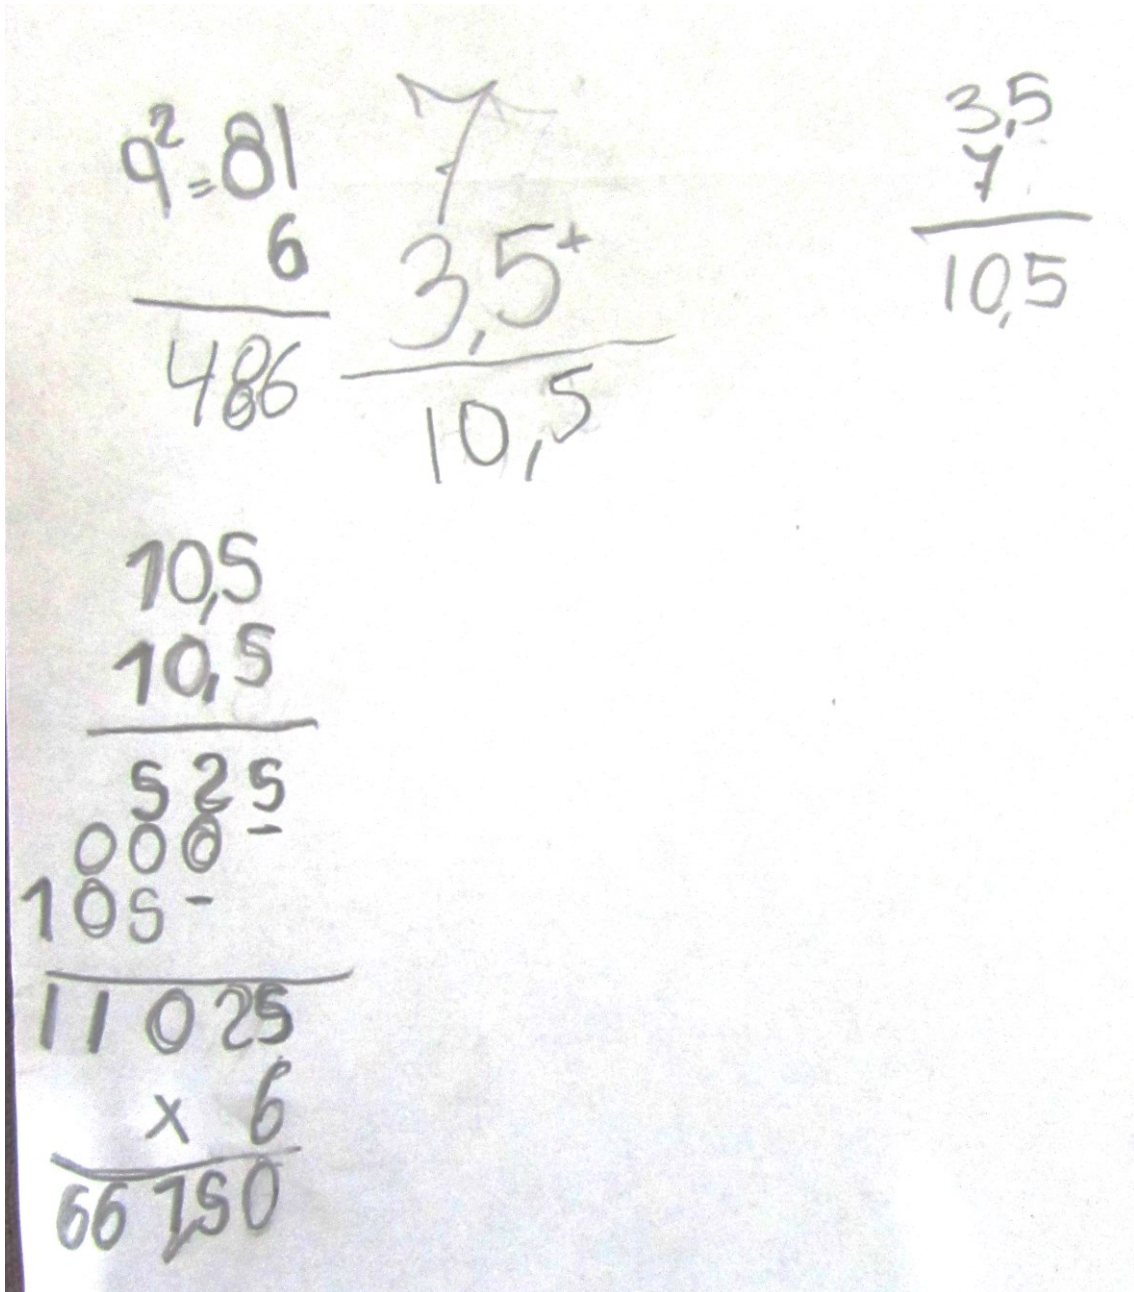 9²=81
6
486
7
3,5+
10,5
3,5
7
10,5
10,5
10,5
525
000-
105-
11025
x 6
66750